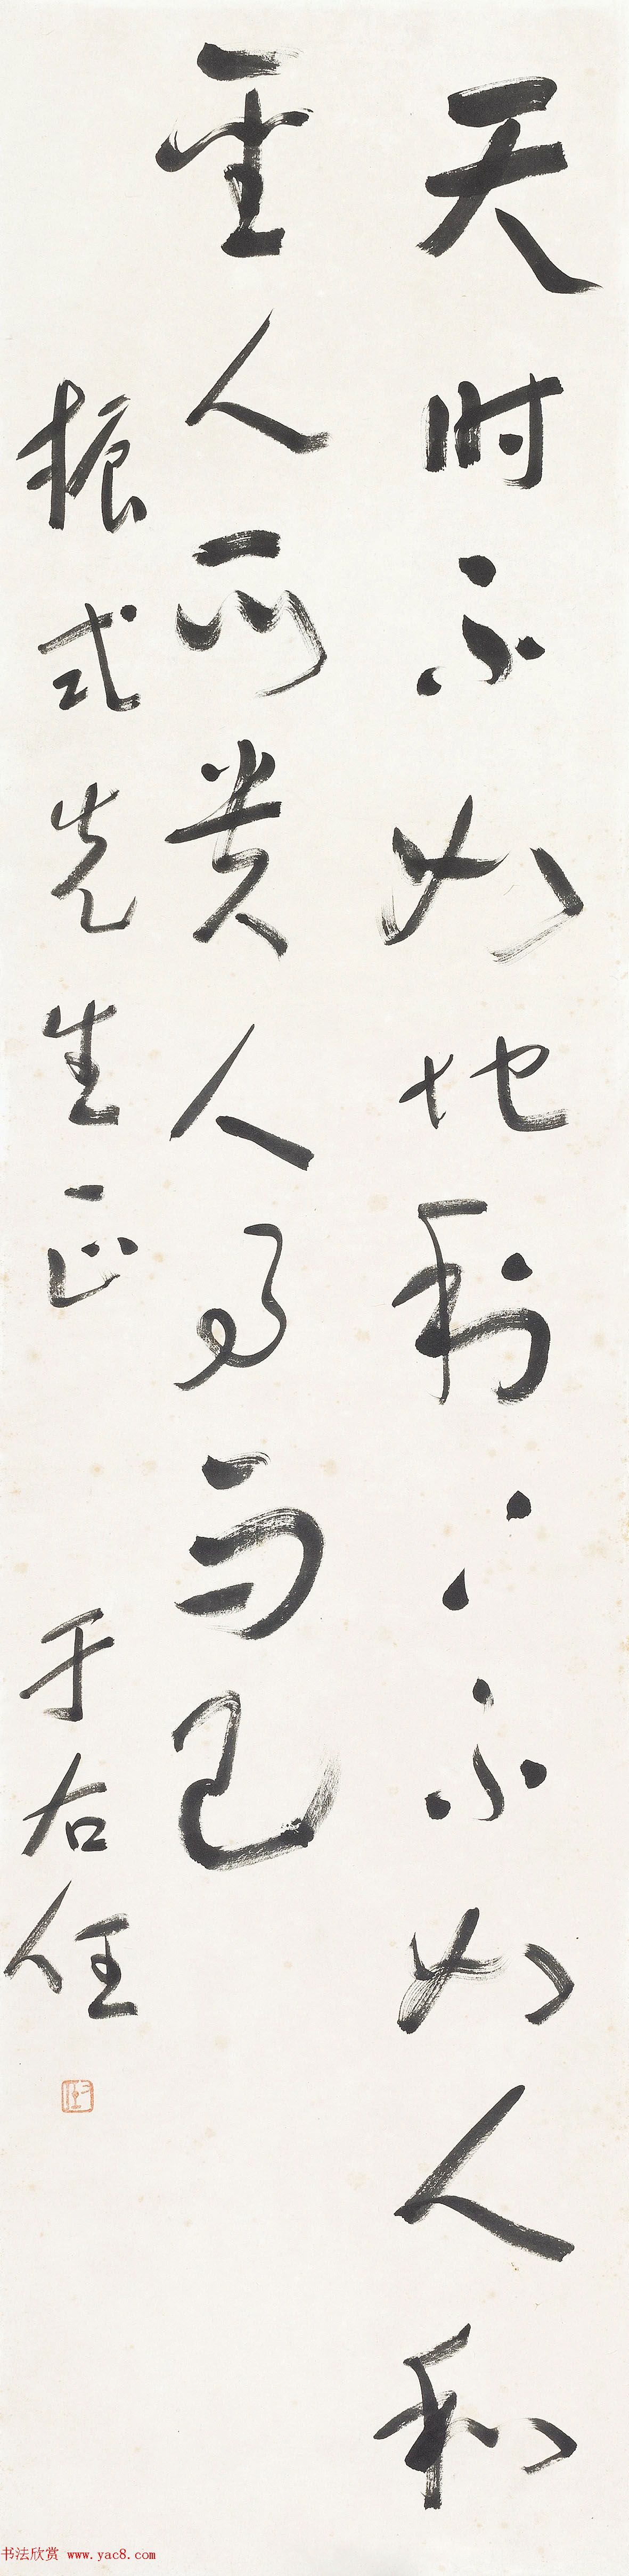 天时不如地利〻不如人和
圣人所贵人事而已
振式先生正 于右任
书法欣赏 www.yac8.com